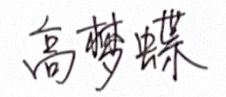 高梦蝶